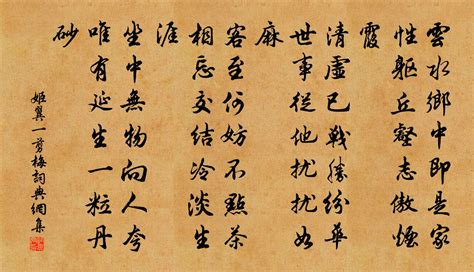 雲水鄉中即是家
性軀丘壑志傲煙
霞
清虛已戰勝紛華
世事從他擾擾如
麻
客至何妨不點茶
相忘交結冷淡生
涯
坐中無物向人夸
唯有延生一粒丹
砂
姬翼一剪梅詞典網集